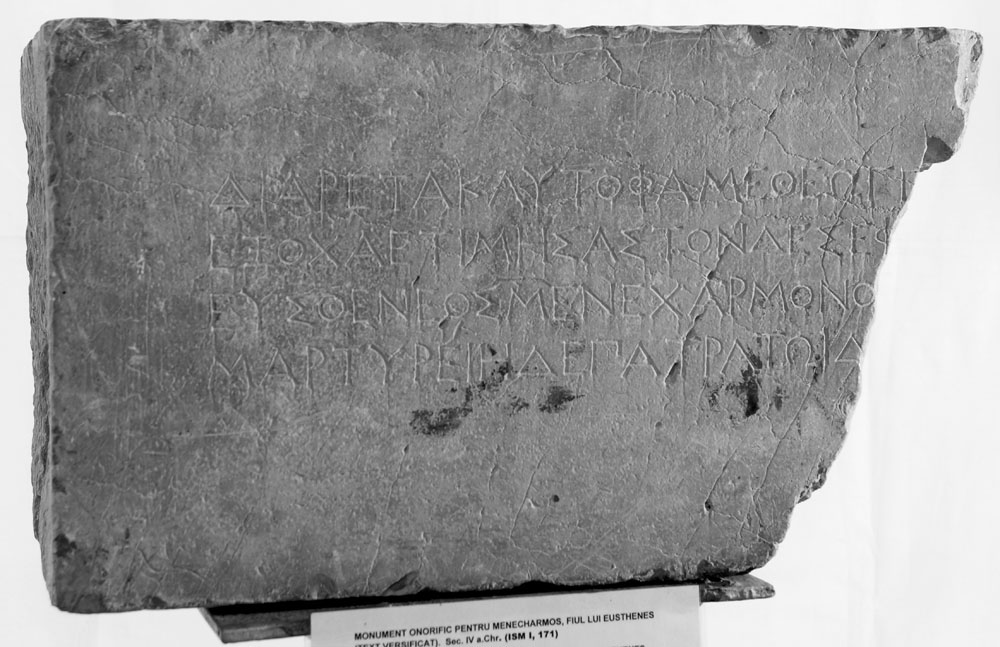 ΔΙΑΡΕΤΑΚΛΥΤΟΦΑΜΕΘΕΩΓΓ
ΕΞΟΧΑΕΤΙΜΗΣΑΣΤΟΝΔΕΣΕ
ΕΥΣΘΕΝΕΟΣΜΕΝΕΧΑΡΜΟΝΟ
ΜΑΡΤΥΡΕΙΗΔΕΠΑΤΡΑΤΩΙΔ
MONUMENT ONORIFIC PENTRU MENECHARMOS, FIUL LUI EUSTHENES
(TEXT VERSIFICAT). Sec. IV a.Chr. (ISM I, 171)